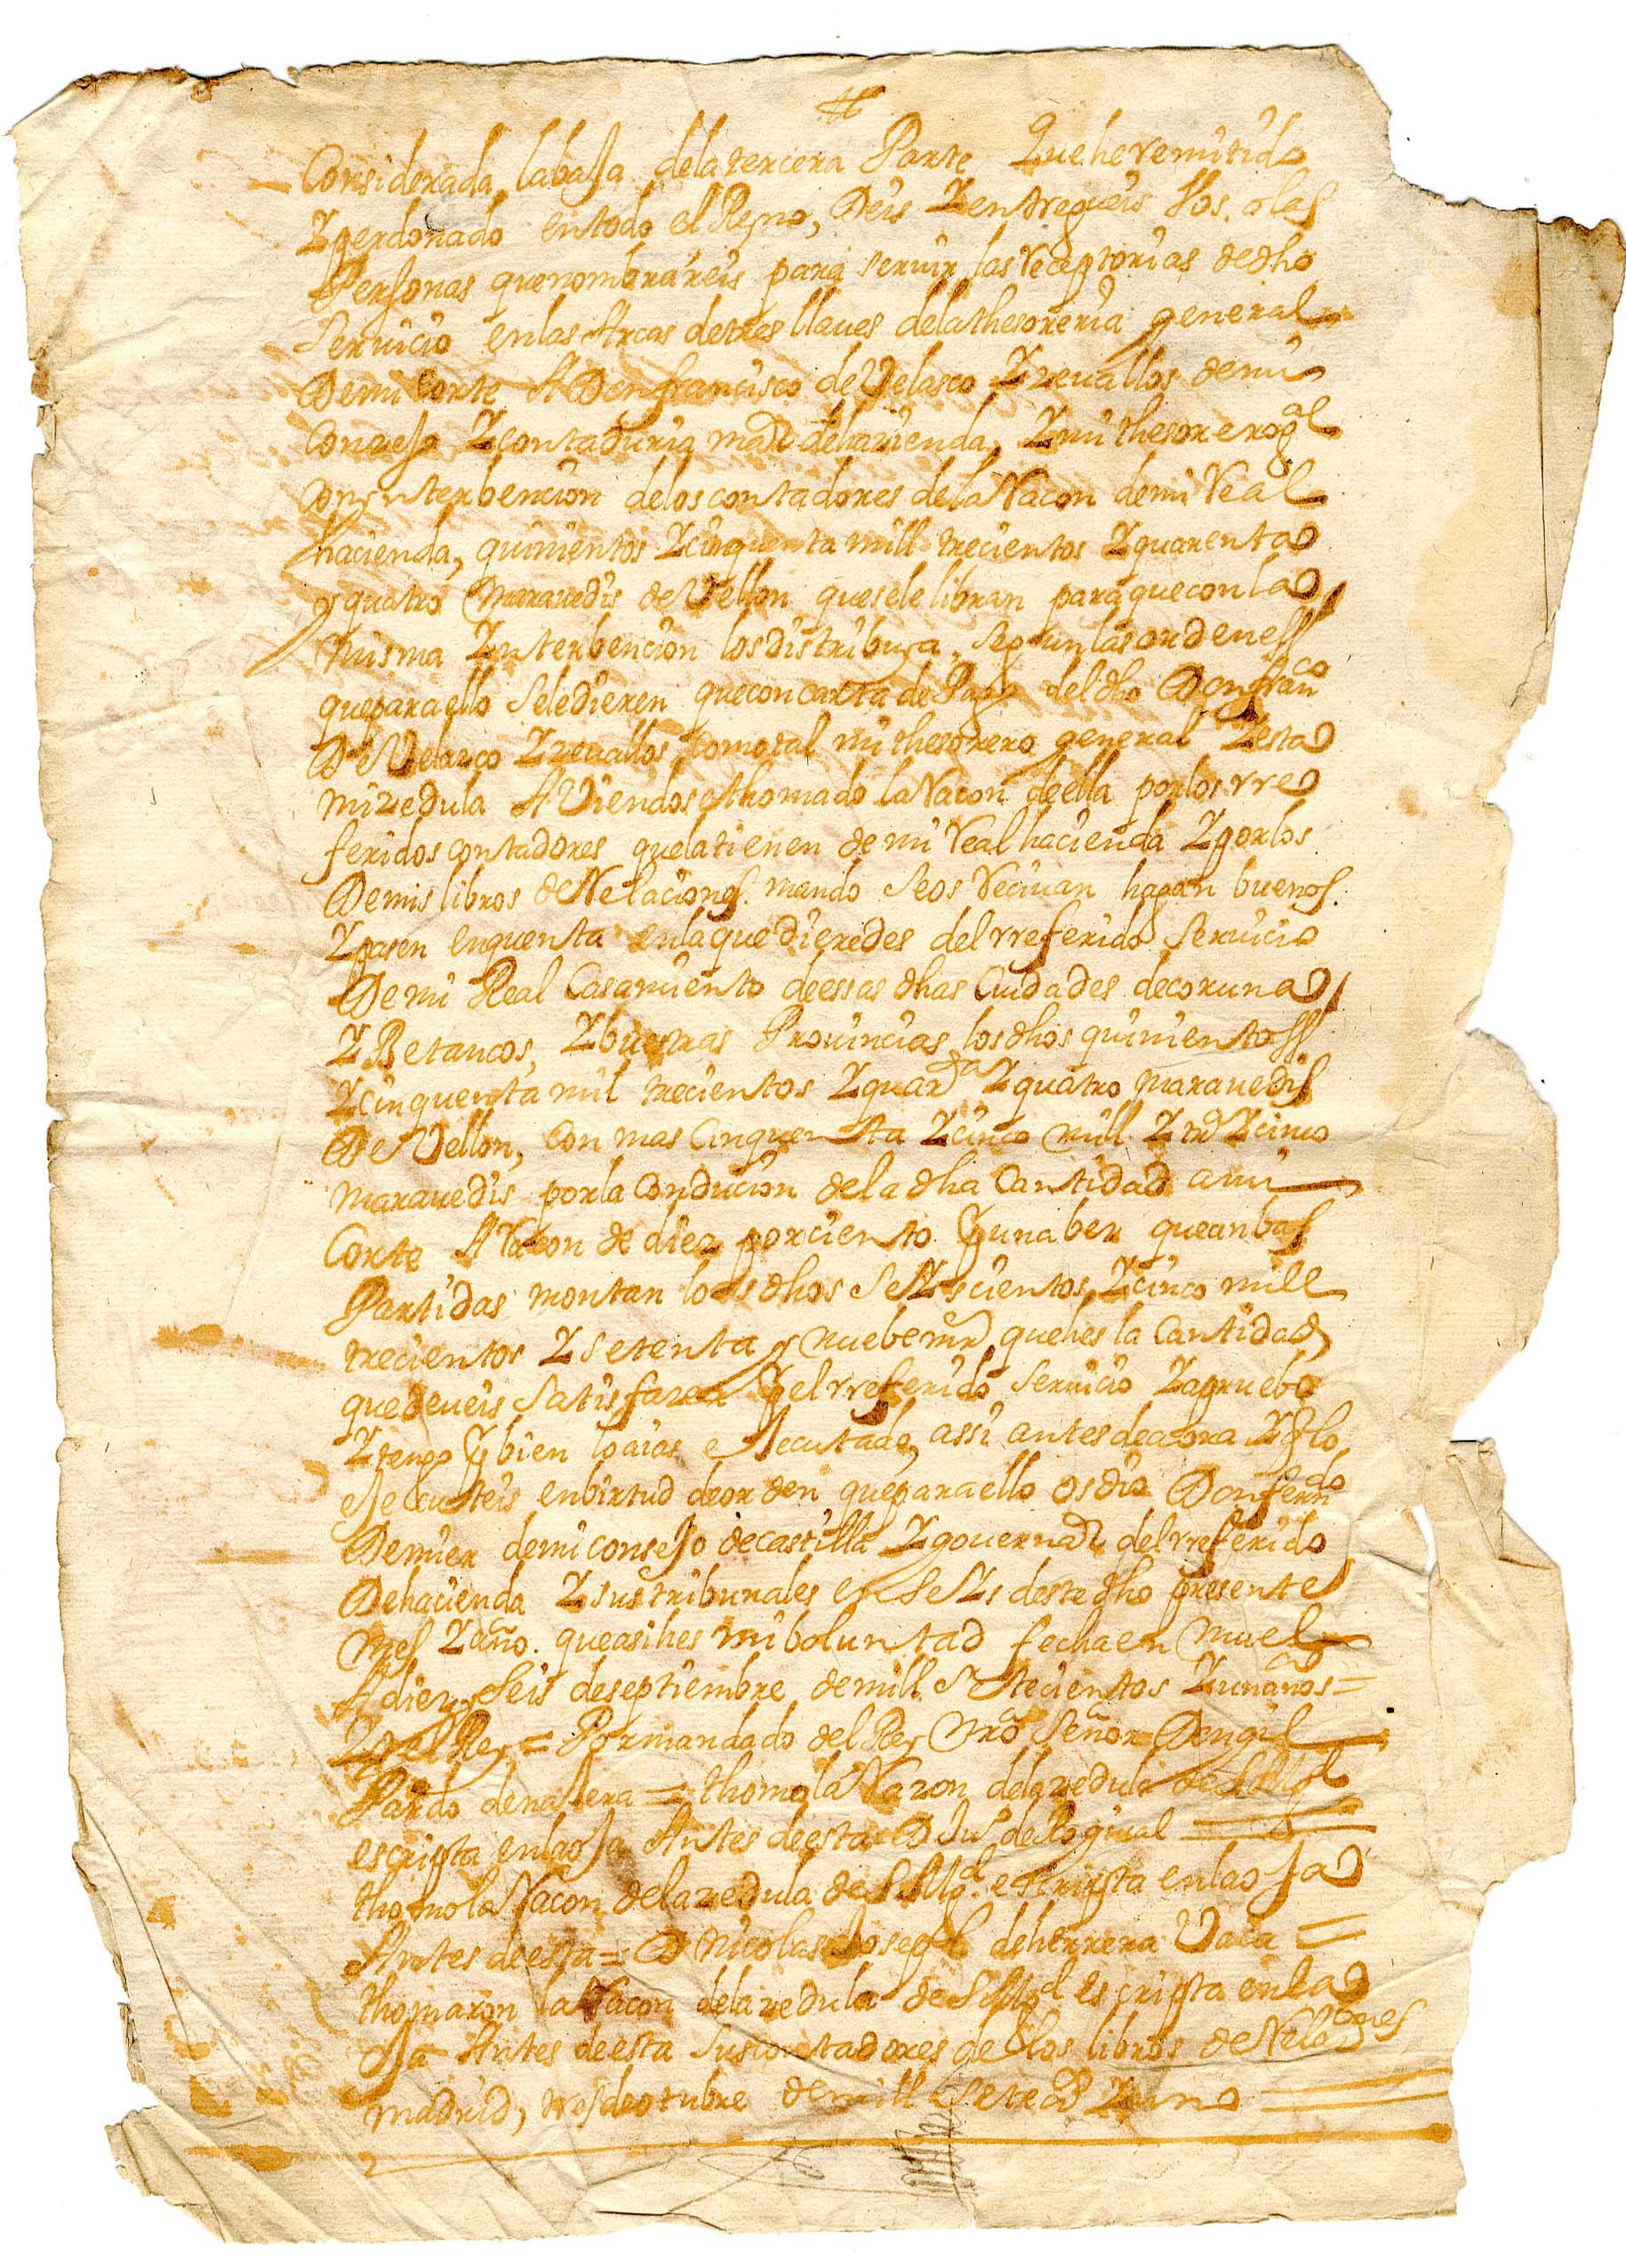 Considerada labaja delatercera Parte Quehe remitido
Yperdonado entodo el Reyno, Deis Yentregueis Vos, olas
Personas quenombrareis para seruir las receptorias dedho
Seruicio enlas Arcas detres llaues delathesoreria general
Demi Corte A Donfrancisco deVelasco Zeuallos demi
Consejo Ycontaduria maor dehazienda, Ymi thesorero gal
con ynterbencion delos contadores dela Racon demi Real
hacienda, quinientos Ycinquenta mill trecientos Yquarenta
y quatro Marauedis de Vellon quesele libran paraqueconla
misma Ynterbencion losdistribuya, segun las ordenes
queparaello seledieren queconcarta dePago deldho Donfranco
De Velasco Zeuallos comotal mi thesorero general Yesta
mizedula AViendose thomado la Racon deella porlos rre
feridos contadores quelatienen de mi Real hacienda Yporlos
Demis libros de Relaciones. mando seos reciuan hagan buenos.
Ypasen enquenta enlaquedieredes del rreferido Seruicio
Demi Real Casamiento deessas dhas Ciudades decoruna
YBetancos, Ybuestras Prouincias losdhos quinientos
Ycinquenta mil trecientos Yquarta Yquatro marauedis
De Vellon, Con mas Cinquenta Ycinco mill Ytrª Ycinco
marauedis porla Conducion dela dha Cantidad ami
Corte A Racon de diez porciento Que queanbas
Partidas montan los dhos Seiscientos Ycinco mill
trecientos Ysetenta y nuebe mrs, quehes la Cantidad
quedeueis satisfazer el rreferido seruicio Yapruebo
Ytengo bien loaias eJecutado, assi antes deaora
eJecusteis enbirtud deorden queparaello osdio Donferndo
Demier demiconsejo decastilla Ygouernador delrreferido
Dehacienda Ysustribunales en seis destedho presente
mes Yaño. queasihes mi boluntad fechaen
Adiez y Seis deseptiembre demill Setecientos Yunaños =
Yo el Rey = Pormandado del Rey Nro Señor Dongil
Pardo denaJera = thomola Razon delazedula de SMgd
escripta enlaoJa Antes deesta D Jun de
thomola Racon delazedula de SMgd. escripta enlaoJa
Antes deesta = D nicolas Joseph deherrera Vaca =
thomaron laRacon delazedula de SMgd Escripta enla
oJa Antes deesta suscontadores de los libros de Relaciones
Madrid, tres deotubre demill Setecos Yuno